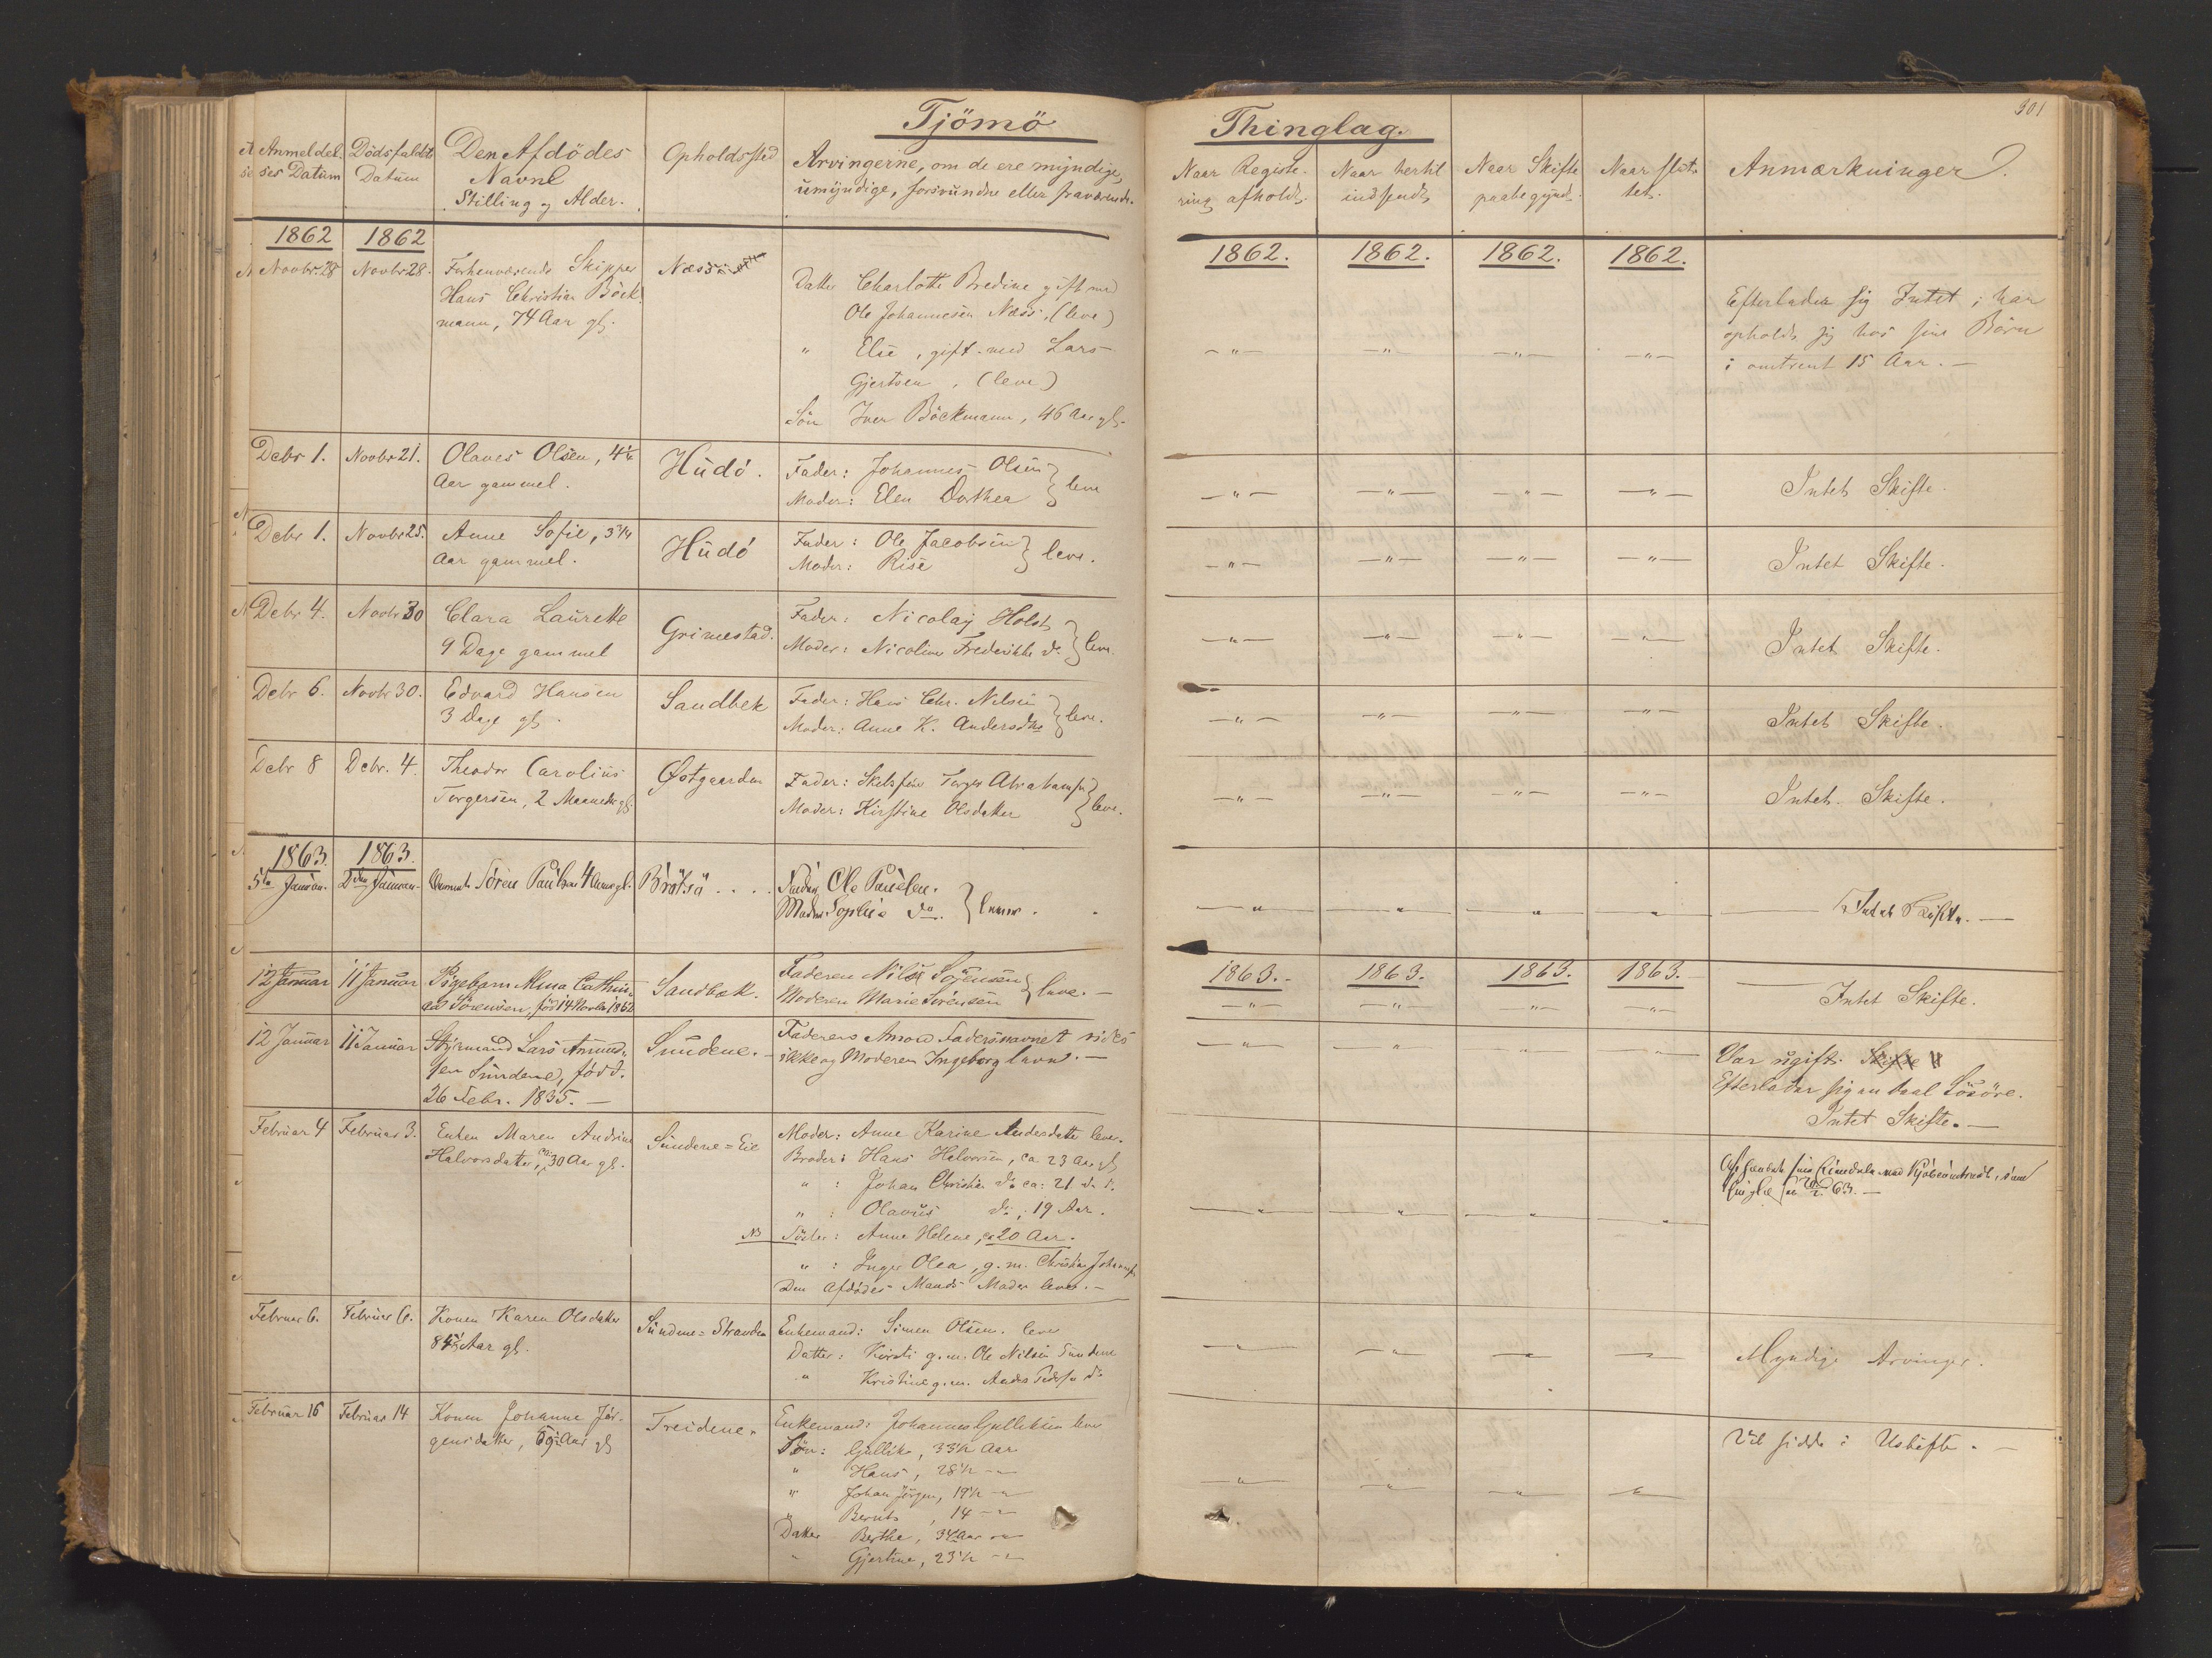 Tjömö Thinglag.
301
Anmeldel. Dödsfaldets Den Afdödes Opholdssted Arvingerne, om de ere myndige,
ses Datum Datum Navne umyndige, forsvundne eller fraværende.
Stilling og Alder.
Naar Registe- Naar hertil Naar Skifte Naar slut- Anmærkninger.
ring afholdt. indsendt paabegyndt. tet.
1862 1862
1862. 1862. 1862. 1862.
Novbr. 28 Novbr. 28. Forhenværende Skipper Næss
Hans Christian Böck-
mann, 74 Aar gl.
Datter Charlotte Bredine gift med
Ole Johannesen Næss, (leve)
" Else, gift med Lars
Gjertsen, (leve)
Sön Iver Böckmann, 46 Aar gl.
—"— —"— —"— —"—
Efterlader sig Intet; har
opholdt sig hos sine Børn
i omtrent 15 Aar. —
Debr 1. Novbr 21. Olaves Olsen, 4
Aar gammel.
Hudö.
Fader: Johannes Olsen
Moder: Elen Dorthea } leve
—"— —"— —"— —"— Intet Skifte.
Debr 1. Novbr 25. Anne Sofie, 3
Aar gammel.
Hudö
Fader: Ole Jacobsen
Moder: Rise } leve.
—"— —"— —"— —"— Intet Skifte.
Debr 4. Novbr 30 Clara Laurette
9 Dage gammel
Grimestad.
Fader: Nicolay Holst
Moder: Nicoline Frederikke do } leve.
—"— —"— —"— —"— Intet Skifte.
Debr 6. Novbr 30. Edvard Hansen
3 Dage gl.
Sandbek
Fader: Hans Chr. Nilsen
Moder: Anne K. Andersdtr } leve.
—"— —"— —"— —"— Intet Skifte.
Debr 8 Debr. 4. Theodor Carolius
Torgersen, 2 Maaneder gl.
Østgaarden
Fader: Torger Abrahamsen
Moder: Kirstine Olsdatter } leve.
—"— —"— —"— —"— Intet Skifte.
1863. 1863.
5te Januar. 2den Januar. Sören Paulsen 4 gl. Brötsö . . . .
Fader Ole Paulsen.
Moder Sophie do. } lever.
—"— —"— —"— —"— Intet Skifte. —
1863. 1863. 1863. 1863.
12 Januar 11 Januar Pigebarn Mina Cathrin-
Sörensen, föd 14 Novbr 1862
Sandbæk.
Faderen Nils Sörensen
Moderen Marie Sörensen } leve. —
—"— —"— —"— —"— Intet Skifte.
12 Januar 11 Januar Styrmand Lars Amund-
sen Sundene, född.
26 Febr. 1835. —
Sundene. —
Faderens Navn Fadersnavnet vides
ikke og Moderen Ingeborg levne. —
—"— —"— —"— —"—
Var ugift. Skifte
Efterlader sig en Deel Lösöre.
Intet Skifte. —
Februar 4 Februar 3. Enken Maren Andrine
Halvorsdatter, ca 30 Aar gl.
Sundene = Eie
Moder: Anne Karine Andersdatter leve.
Broder: Hans Halvorsen, ca. 23 Aar gl
" : Johan Christian do ca: 21 do do.
" : Olavus do, 19 Aar.
NB Söster: Anne Helene, ca 20 Aar.
" : Inger Olea, g. m. Christian Johannsen
Den Afdödes Mands Moder lever. —
—"— —"— —"— —"—
63. —
Februar 6. Februar 6. Konen Karen Olsdatter
84½ Aar gl.
Sundene = Stranden
Enkemand: Simen Olsen. lever
Datter: Kirsti g. m. Ole Nilsen Sundene
" Kristine g. m. Anders Pedersen do
—"— —"— —"— —"— Myndige Arvinger.
Februar 16 Februar 14 Konen Johanne Jör-
gensdatter, Aar gl
Treidene.
Enkemand: Johannes Gulliksen lever
Sön: Gullik, 33½ Aar
" Hans, 28½ —"—
" Johan Jörgen, 19½ —"—
" Bernts, 14 —"—
Datter Berthe, 34 Aar —"—
" Gjertine, 23½ —"—
—"— —"— —"— —"—
Vil sidde i Uskifte. —